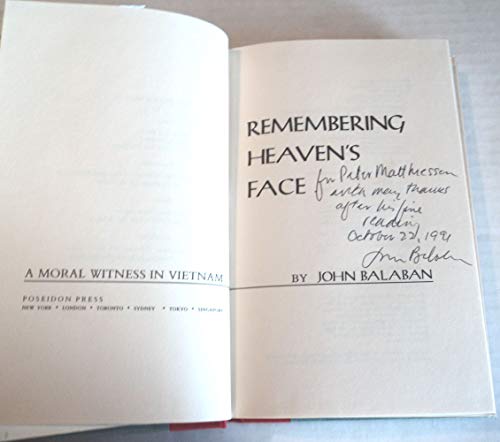 A MORAL WITNESS IN VIETNAM
POSEIDON PRESS
NEW YORK • LONDON • TORONTO • SYDNEY • TOKYO • SINGAPORE
REMEMBERING
HEAVEN'S
FACE
for Peter Matthiessen
with many thanks
after his fine
reading
October 22, 1991
John Balaban
BY JOHN BALABAN